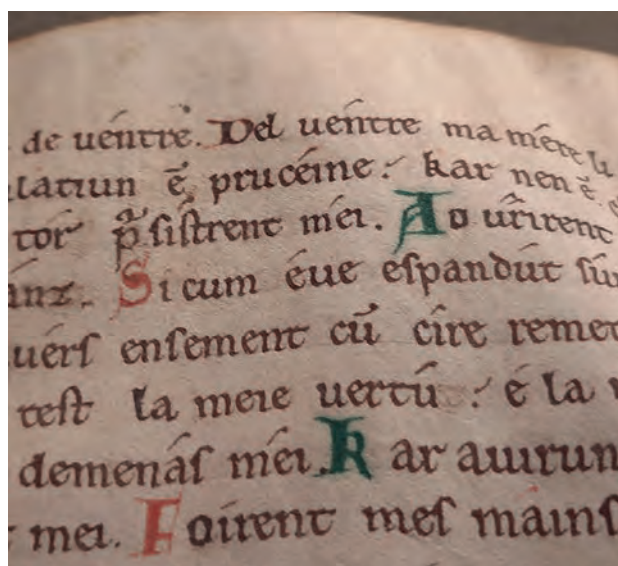 de uéntre. Del uéntre ma mére li
latiun ē prucéine : kar nen ē
tor p̃ ſiſtrent méi. Ao uřirent
ánz. Si cum éue eſpandút ſui
uérſ enſement cū círe remet
teſt la meie uertú : é la
demenáſ méi. Kar auirun
mei. Foírent meſ mainſ